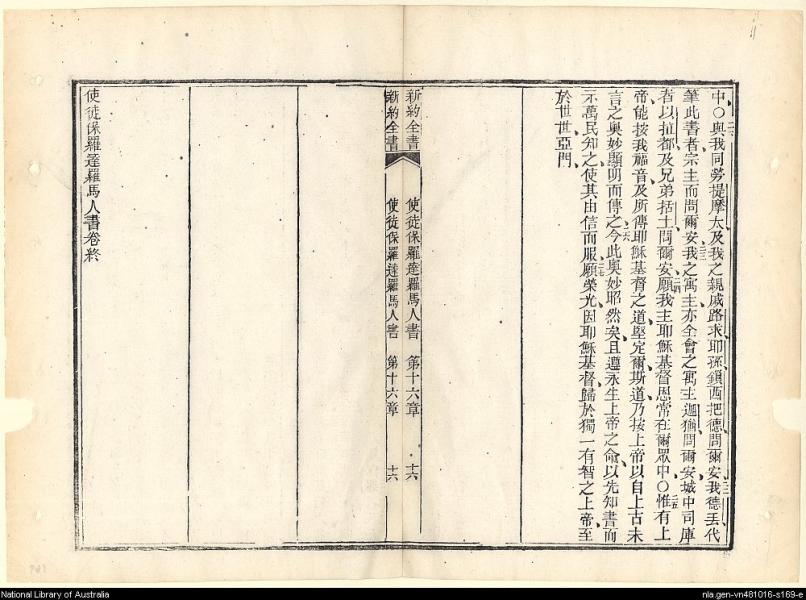 中〇與我同勞提摩太及我之親戚路求耶孫鎖西把德問爾安我德丟代
筆此書者宗主而問爾安我之寓主亦全會之寓主迦猶問爾安城中司庫
者以拉都及兄弟括土問爾安願我主耶穌基督恩常在爾眾中〇惟有上
帝能按我福音及所傳耶穌基督之道堅定爾斯道乃按上帝以自上古未
言之奧妙顯明而傳之今此奧妙昭然矣且遵永生上帝之命以先知書而
示萬民知之使其由信而服願榮光因耶穌基督歸於獨一有智之上帝至
於世世亞門
新約全書 使徒保羅達羅馬人書 第十六章 十六
新約全書 使徒保羅達羅馬人書 第十六章 十六
使徒保羅達羅馬人書卷終
National Library of Australia
nla.gen-vn481016-s169-e